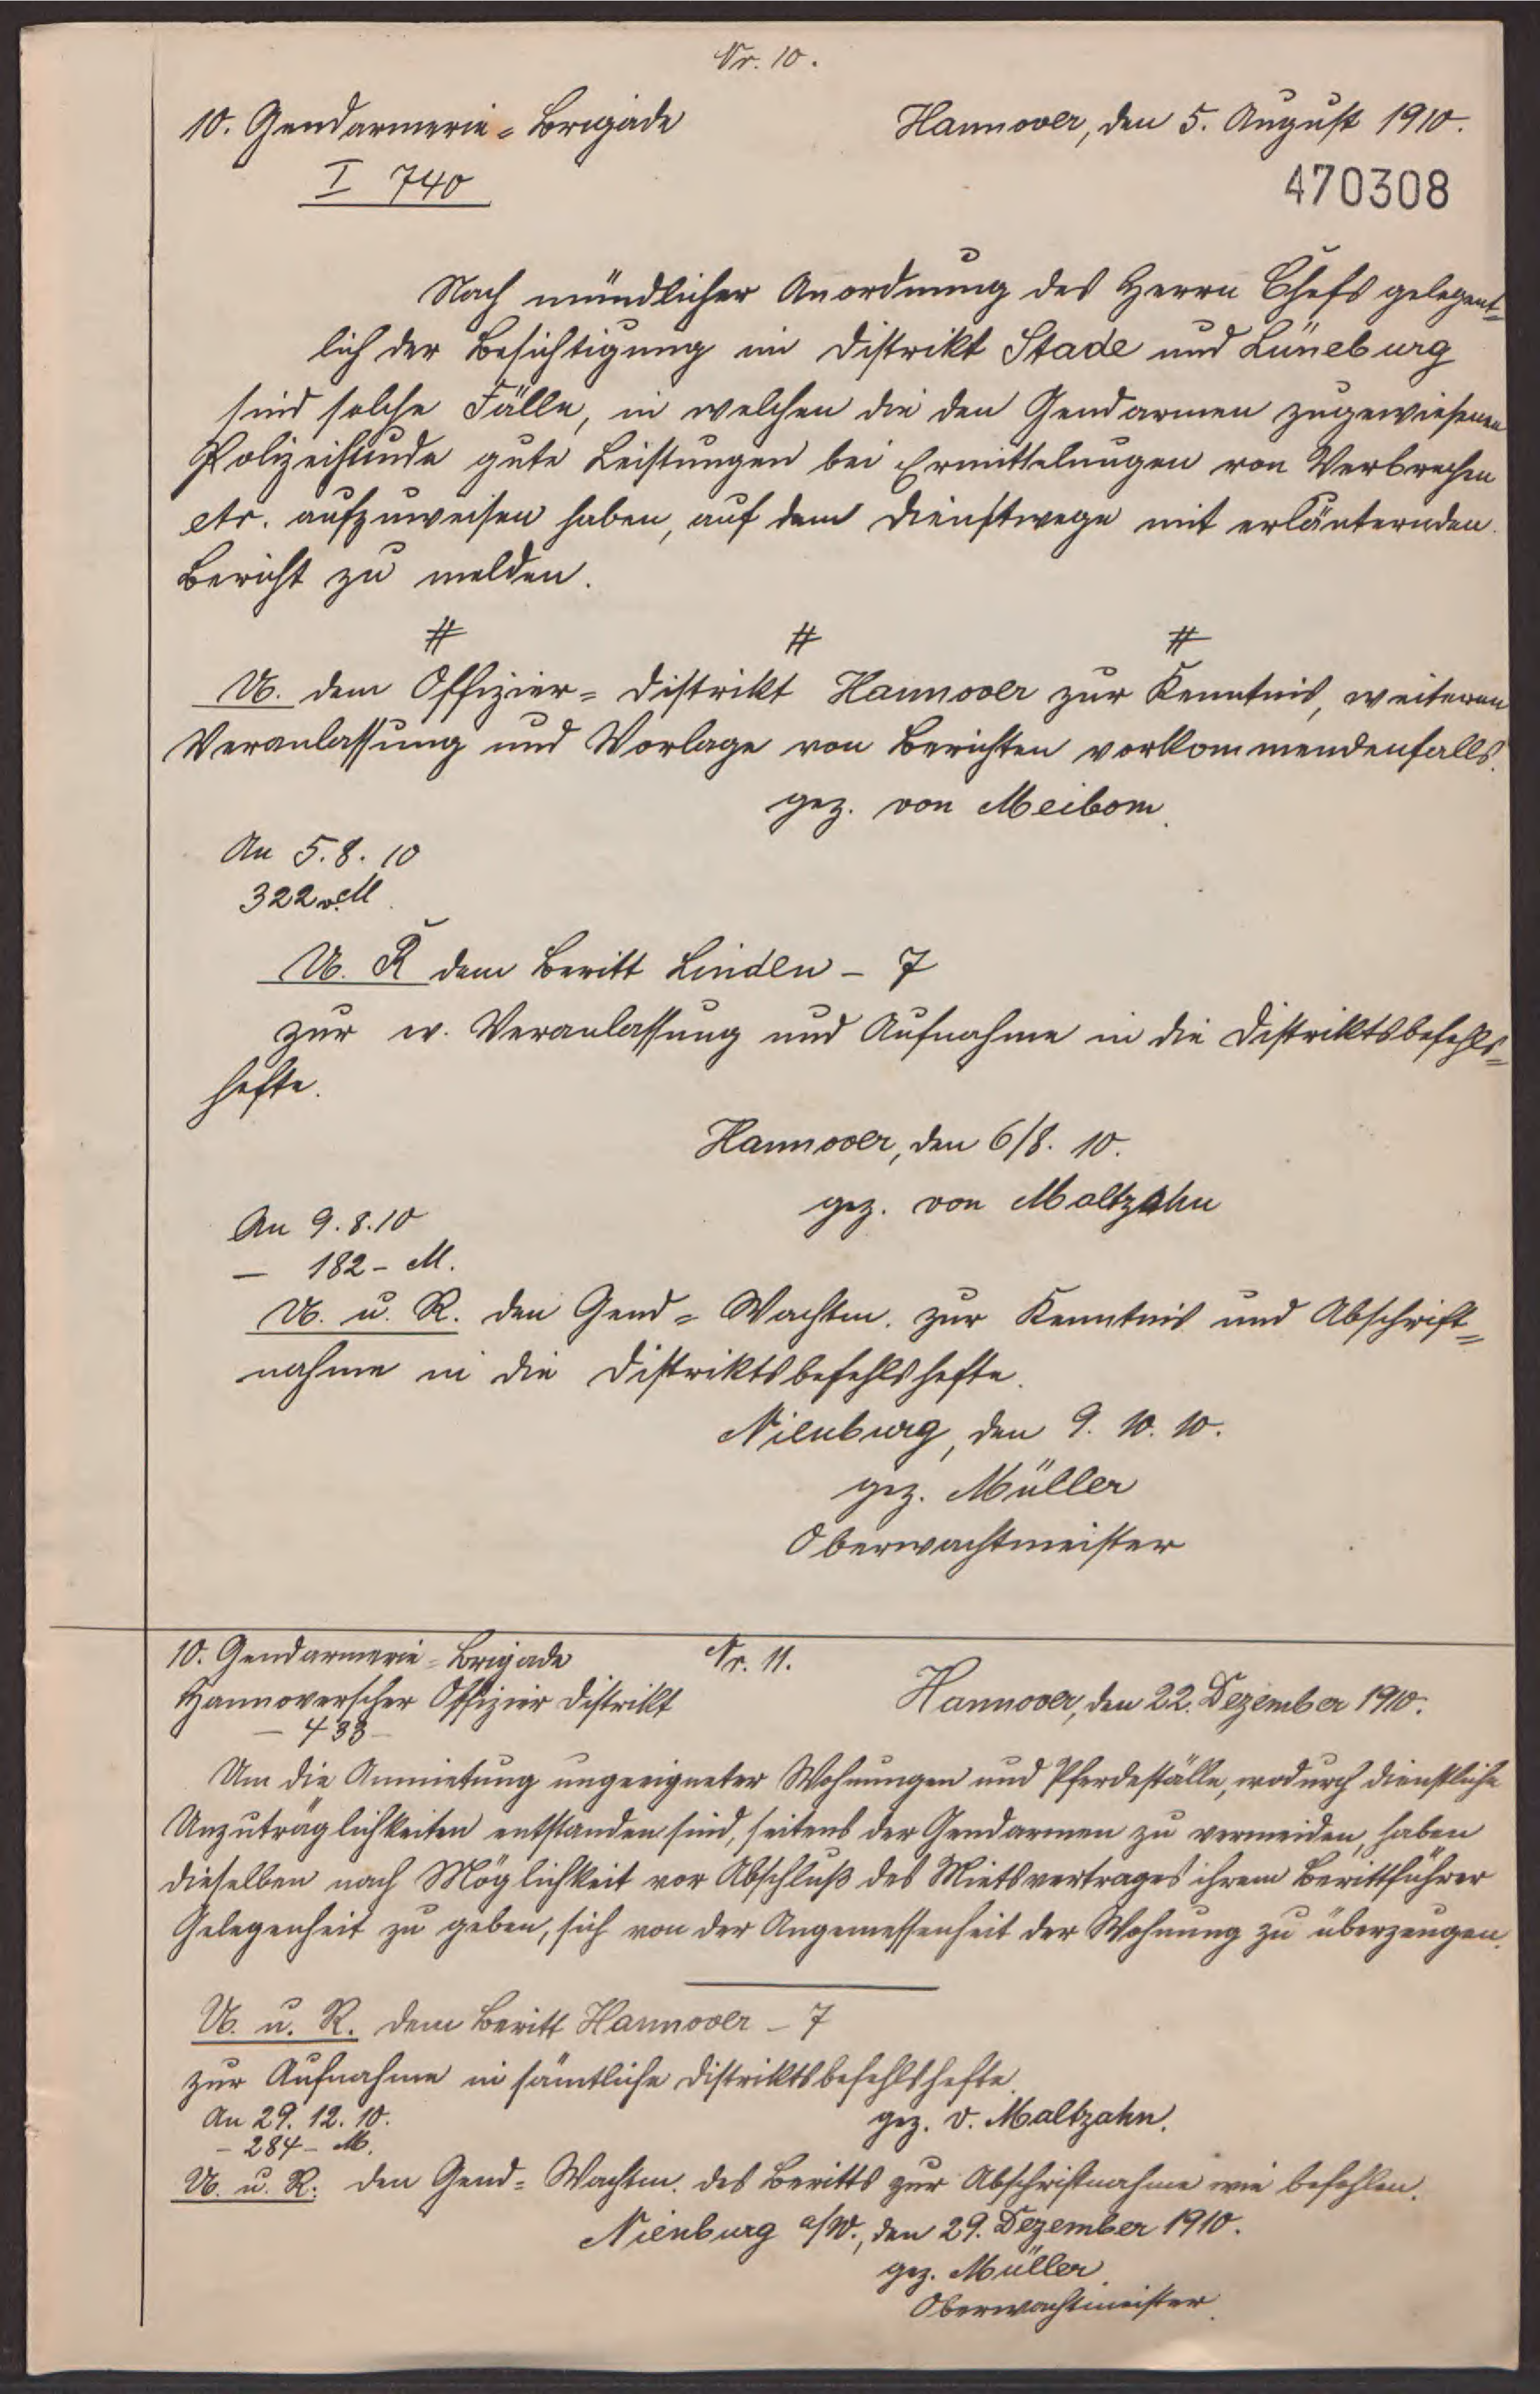 Nr. 10.
10. Gendarmerie=Brigade
Hannover, den 5. August 1910.
I 740
470308
Nach mündlicher Anordnung des Herrn Chefs gelegent=
lich der Besichtigung im Distrikt Stade und Lüneburg
sind solche Fälle, in welchen die den Gendarmen zugewiesenen
Polizeihunde gute Leistungen bei Ermittelungen von Verbrechen
etc. aufzuweisen haben, auf dem Dienstwege mit erläuternden
Bericht zu melden.
# # #
U. dem Offizier=Distrikt Hannover zur Kenntnis, weiteren
Veranlassung und Vorlage von Berichten vorkommendenfalls.
gez. von Meibom.
An 5.8.10
322 v. M.
U. R dem Beritt Linden – 7
zur w. Veranlassung und Aufnahme in die Distriktsbefehls=
hefte.
Hannover, den 6/8. 10.
gez. von Maltzahn
An 9.8.10
– 182 – M.
U. u. R. den Gend=Wachtm. zur Kenntnis und Abschrift=
nahme in die Distriktsbefehlshefte.
Nienburg, den 9. 10. 10.
gez. Müller
Oberwachtmeister
10. Gendarmerie=Brigade
Nr. 11.
Hannoverscher Offizier Distrikt
Hannover, den 22. Dezember 1910.
– 433 –
Um die Anmietung ungeeigneter Wohnungen und Pferdeställe, wodurch dienstliche
Unzuträglichkeiten entstanden sind, seitens der Gendarmen zu vermeiden, haben
dieselben nach Möglichkeit vor Abschluß des Mietsvertrages ihrem Berittführer
Gelegenheit zu geben, sich von der Angemessenheit der Wohnung zu überzeugen.
U. u. R. dem Beritt Hannover – 7
zur Aufnahme in sämtliche Distriktsbefehlshefte.
An 29. 12. 10.
gez. v. Maltzahn.
– 284 – M.
U. u. R. den Gend=Wachtm. des Beritts zur Abschriftnahme wie befohlen.
Nienburg a/W., den 29. Dezember 1910.
gez. Müller
Oberwachtmeister.